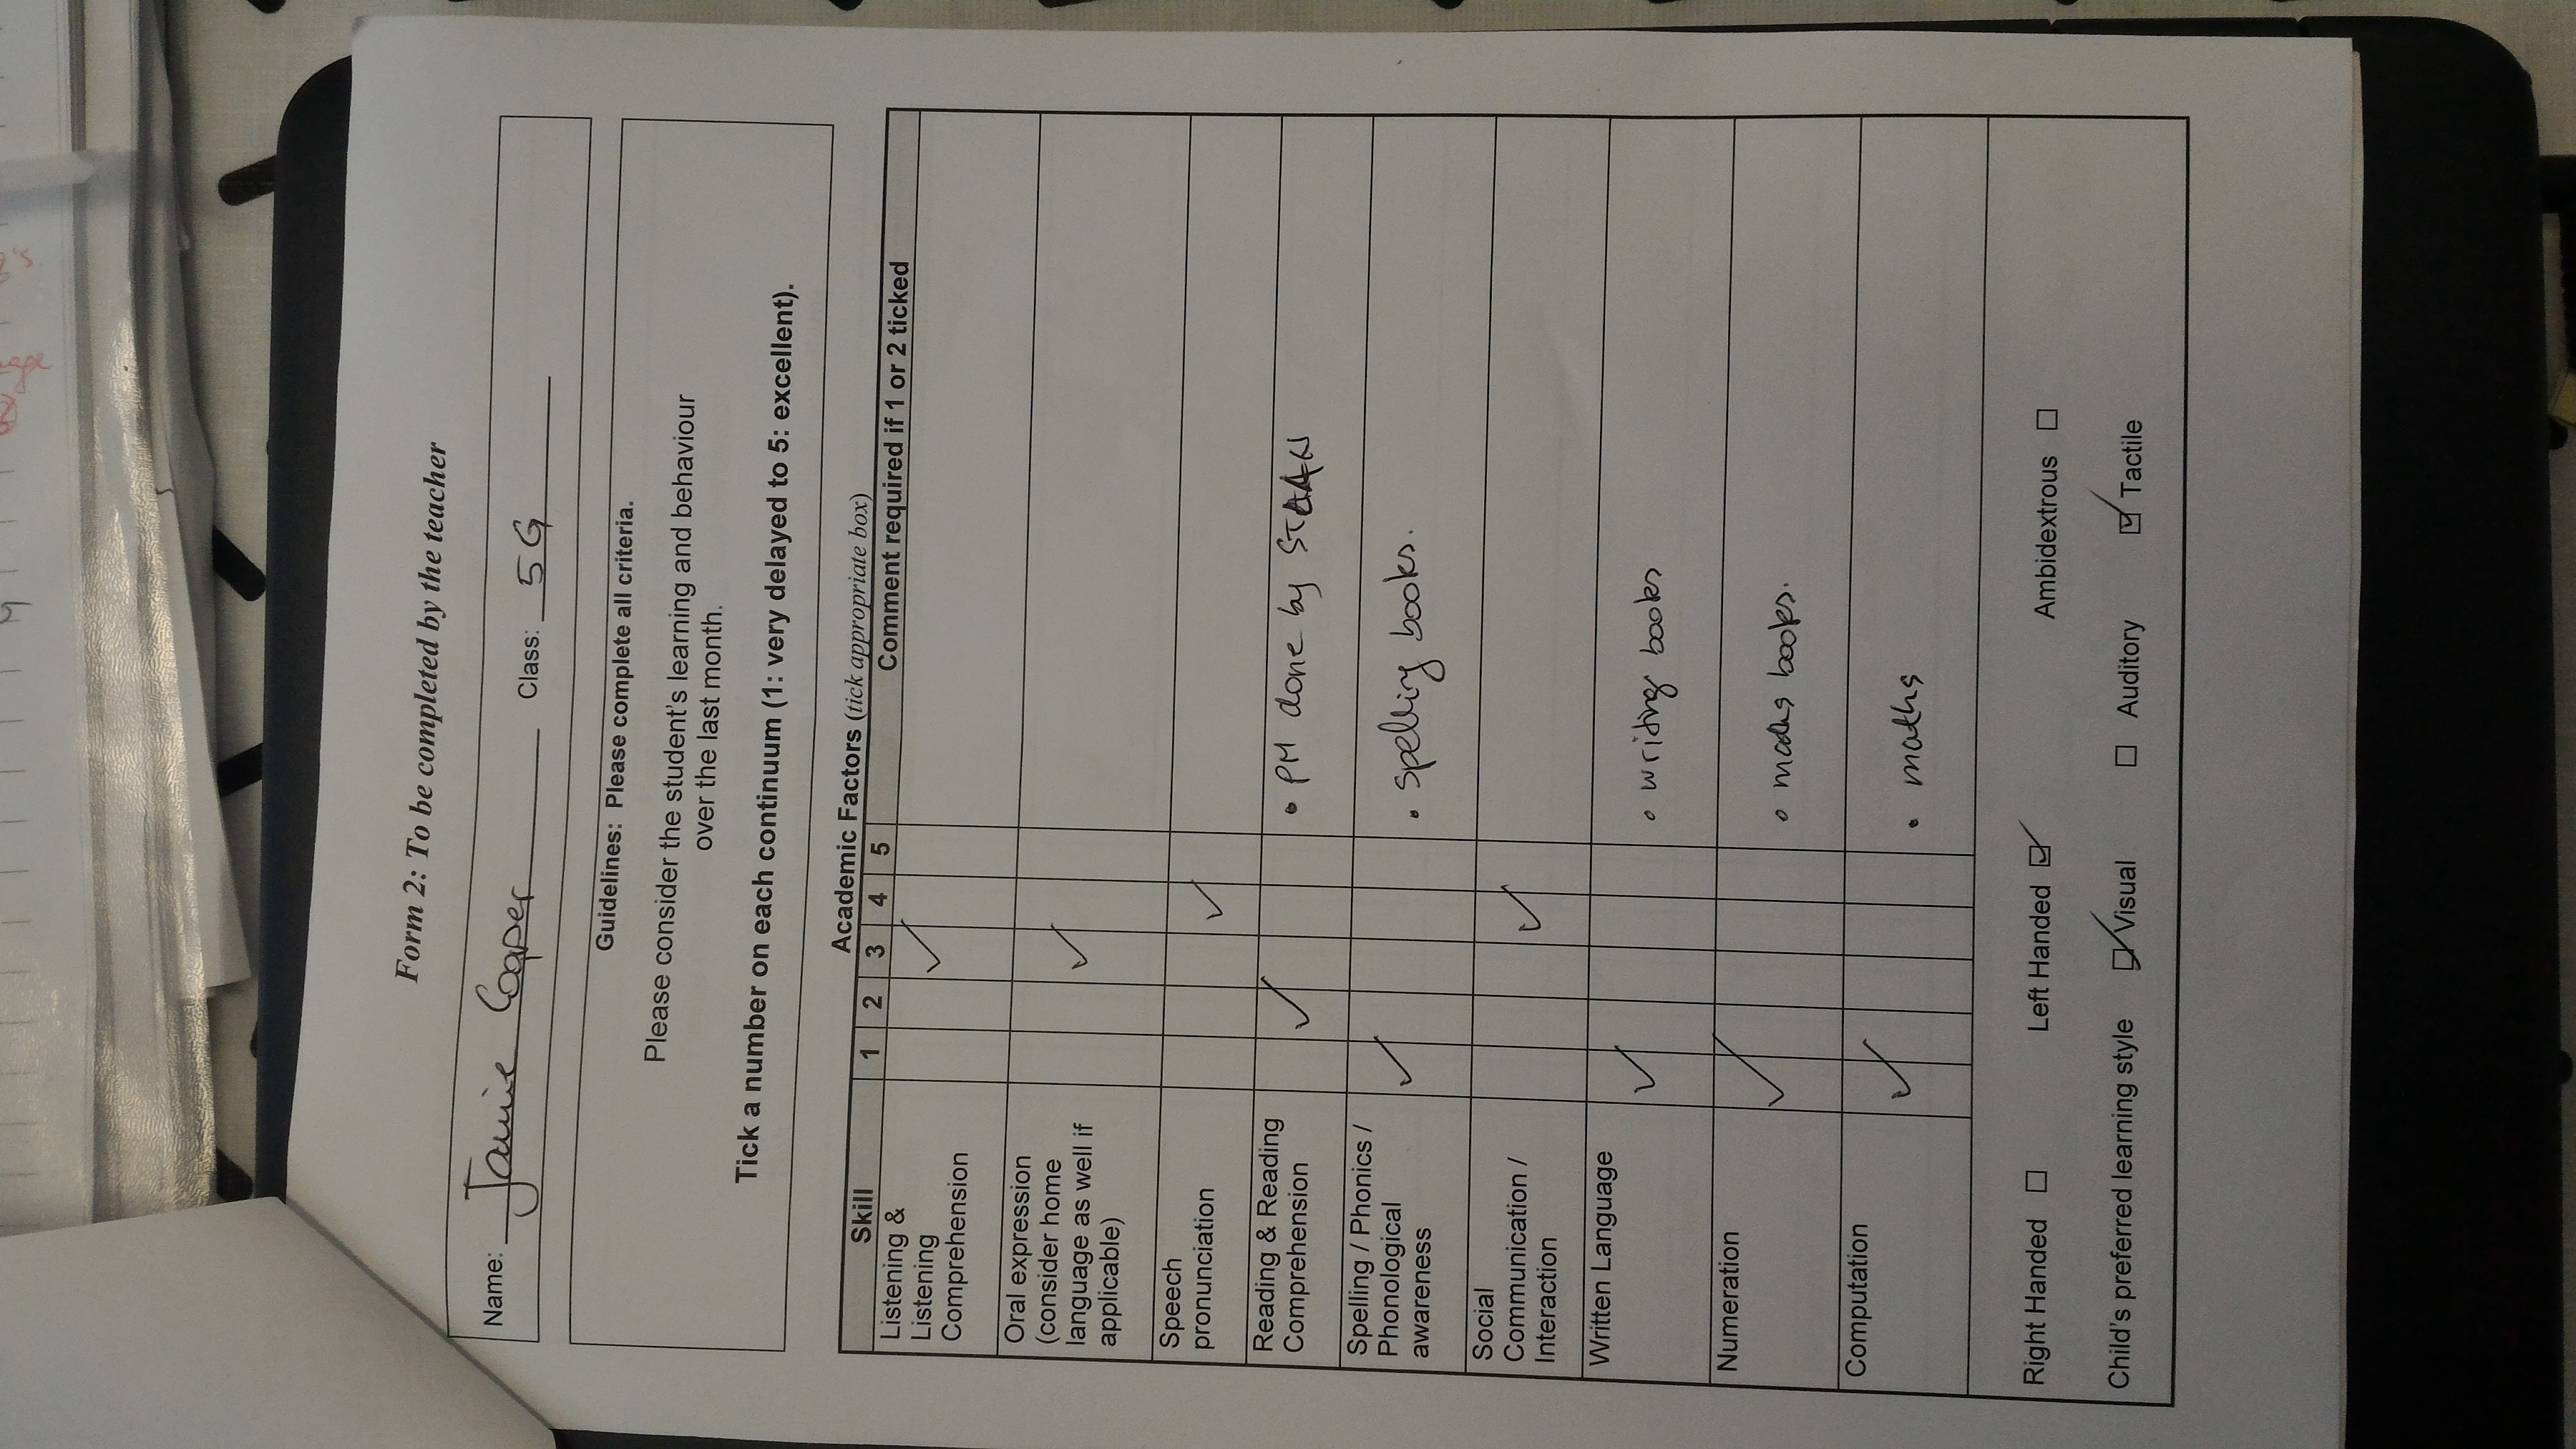 Form 2: To be completed by the teacher
Name: Jamie Cooper Class: 5G
Guidelines: Please complete all criteria.
Please consider the student's learning and behaviour
over the last month.
Tick a number on each continuum (1: very delayed to 5: excellent).
Academic Factors (tick appropriate box)
Skill 1 2 3 4 5 Comment required if 1 or 2 ticked
Listening &
Listening
Comprehension ✓
Oral expression
(consider home
language as well if
applicable) ✓
Speech
pronunciation ✓
Reading & Reading
Comprehension ✓ • PM done by
Spelling / Phonics /
Phonological
awareness ✓ • spelling books.
Social
Communication /
Interaction ✓
Written Language ✓ • writing books
Numeration ✓ • maths books.
Computation ✓ • maths
Right Handed ☐ Left Handed ☑ Ambidextrous ☐
Child's preferred learning style ☑ Visual ☐ Auditory ☑ Tactile